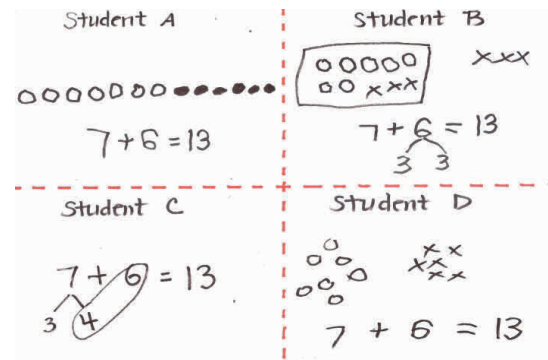 Student A
7 + 6 = 13
Student B
xxx
xxx
7 + 6 = 13
3 3
Student C
7 + 6 = 13
3 4
Student D
7 + 6 = 13